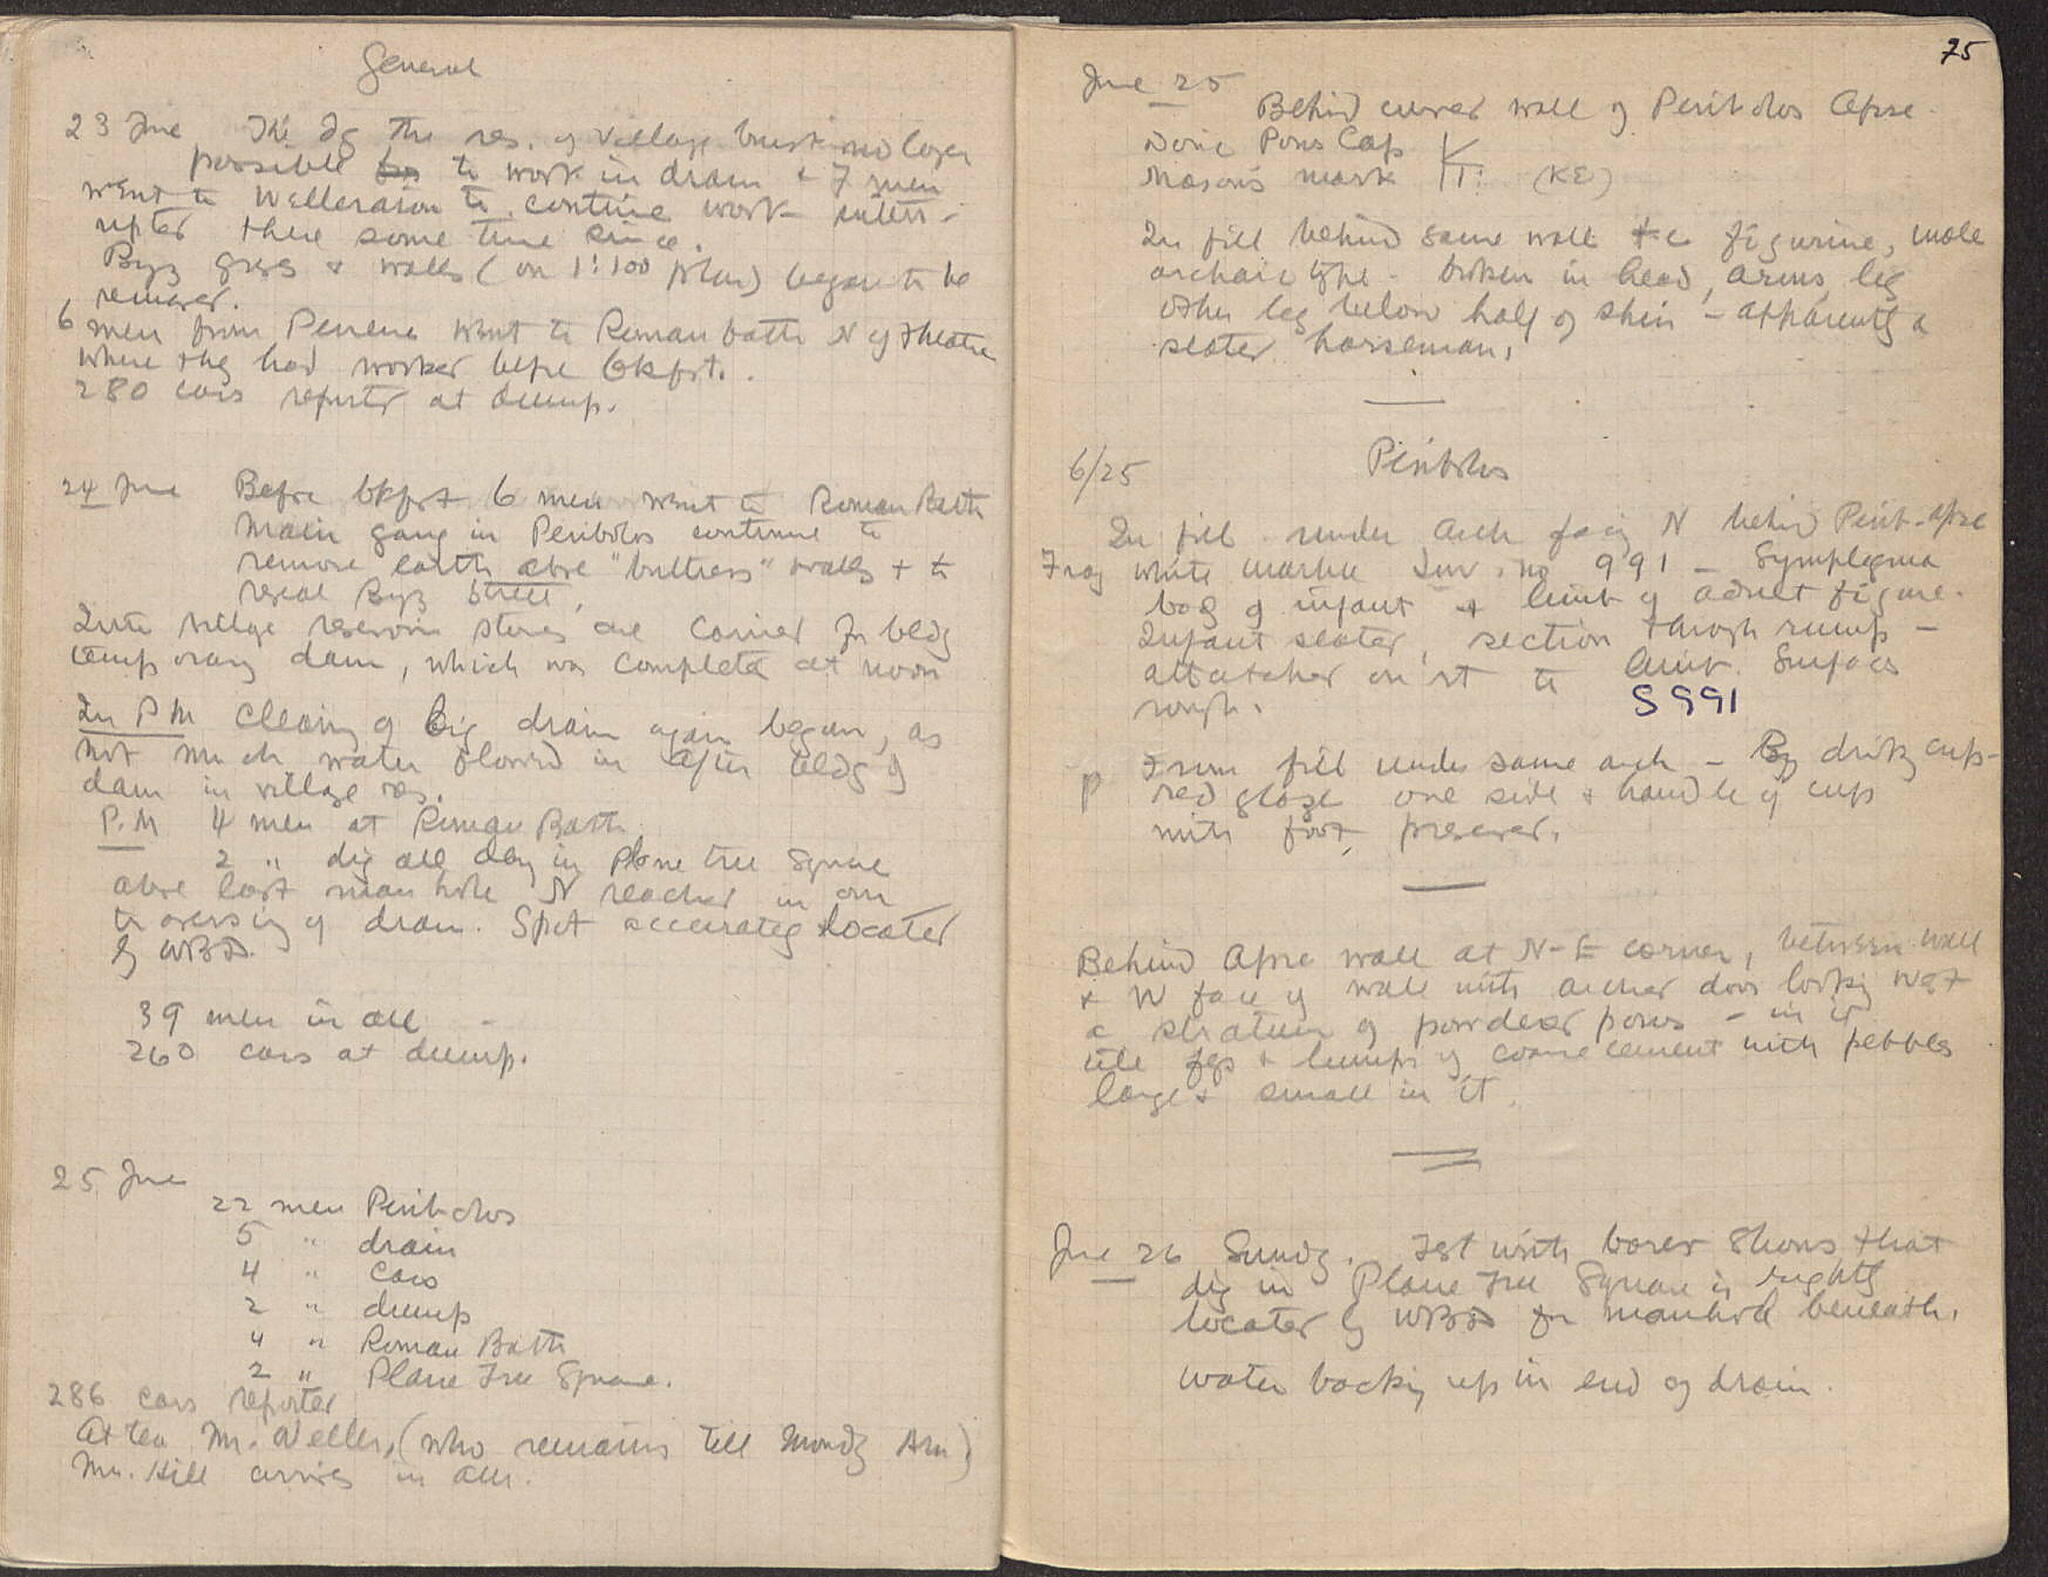 General
23 June The dg the res. of village burst no longer
possible to work in drain & 7 men
went to Welleraion to continue work inter-
rupted there some time since.
Byz graves & walls (on 1:100 plan) began to be
removed.
6 men from Peirene went to Roman bath N of theatre
where they had worked before bkfst.
280 cars reported at dump.
24 June Before bkfst 6 men went to Roman Bath
Main gang in Peribolos continue to
remove earth above "buttress" walls & to
reveal Byz street.
Into village reservoir stones are carried for bldg
temporary dam, which was completed at noon
In PM Clearing of big drain again began, as
not much water flowed in after bldg of
dam in village res.
P.M 4 men at Roman Bath
2 " dig all day in Plane tree Square
above last manhole N reached in our
traversing of drain. Spot accurately located
by WBD.
39 men in all -
260 cars at dump.
25 June
22 men Peribolos
5 " drain
4 " cars
2 " dump
4 " Roman Bath
2 " Plane Tree Square.
286 cars reported
At tea Mr. Weller, (who remains till Mondy Am)
Mr. Hill arrives in aft.
75
June 25
Behind curved wall of Peribolos Apse.
Doric Poros Cap
Mason's mark (KE)
In fill behind same wall tc figurine, male
archaic type - broken in head, arms, leg
other leg below half of shin - apparently a
seated horseman.
6/25 Peribolos
In fill under arch facing N behind Perib. apse
Frag white marble Inv. no 991 - Symplegma
body of infant & limb of adult figure.
Infant seated, section through rump -
attached on rt to limb. Surfaces
rough. S 991
P From fill under same arch - By drinkg cup-
red glaze one side & handle of cup
with foot preserved.
Behind Apse wall at N-E corner, between wall
& W face of wall with arched door looking West
a stratum of powdered poros - in it
tile fgs & lumps of coarse cement with pebbles
large & small in it.
June 26 Sundy. Test with borer shows that
dig in Plane Tree Square is rightly
located by WBD for manhole beneath.
Water backing up in end of drain.